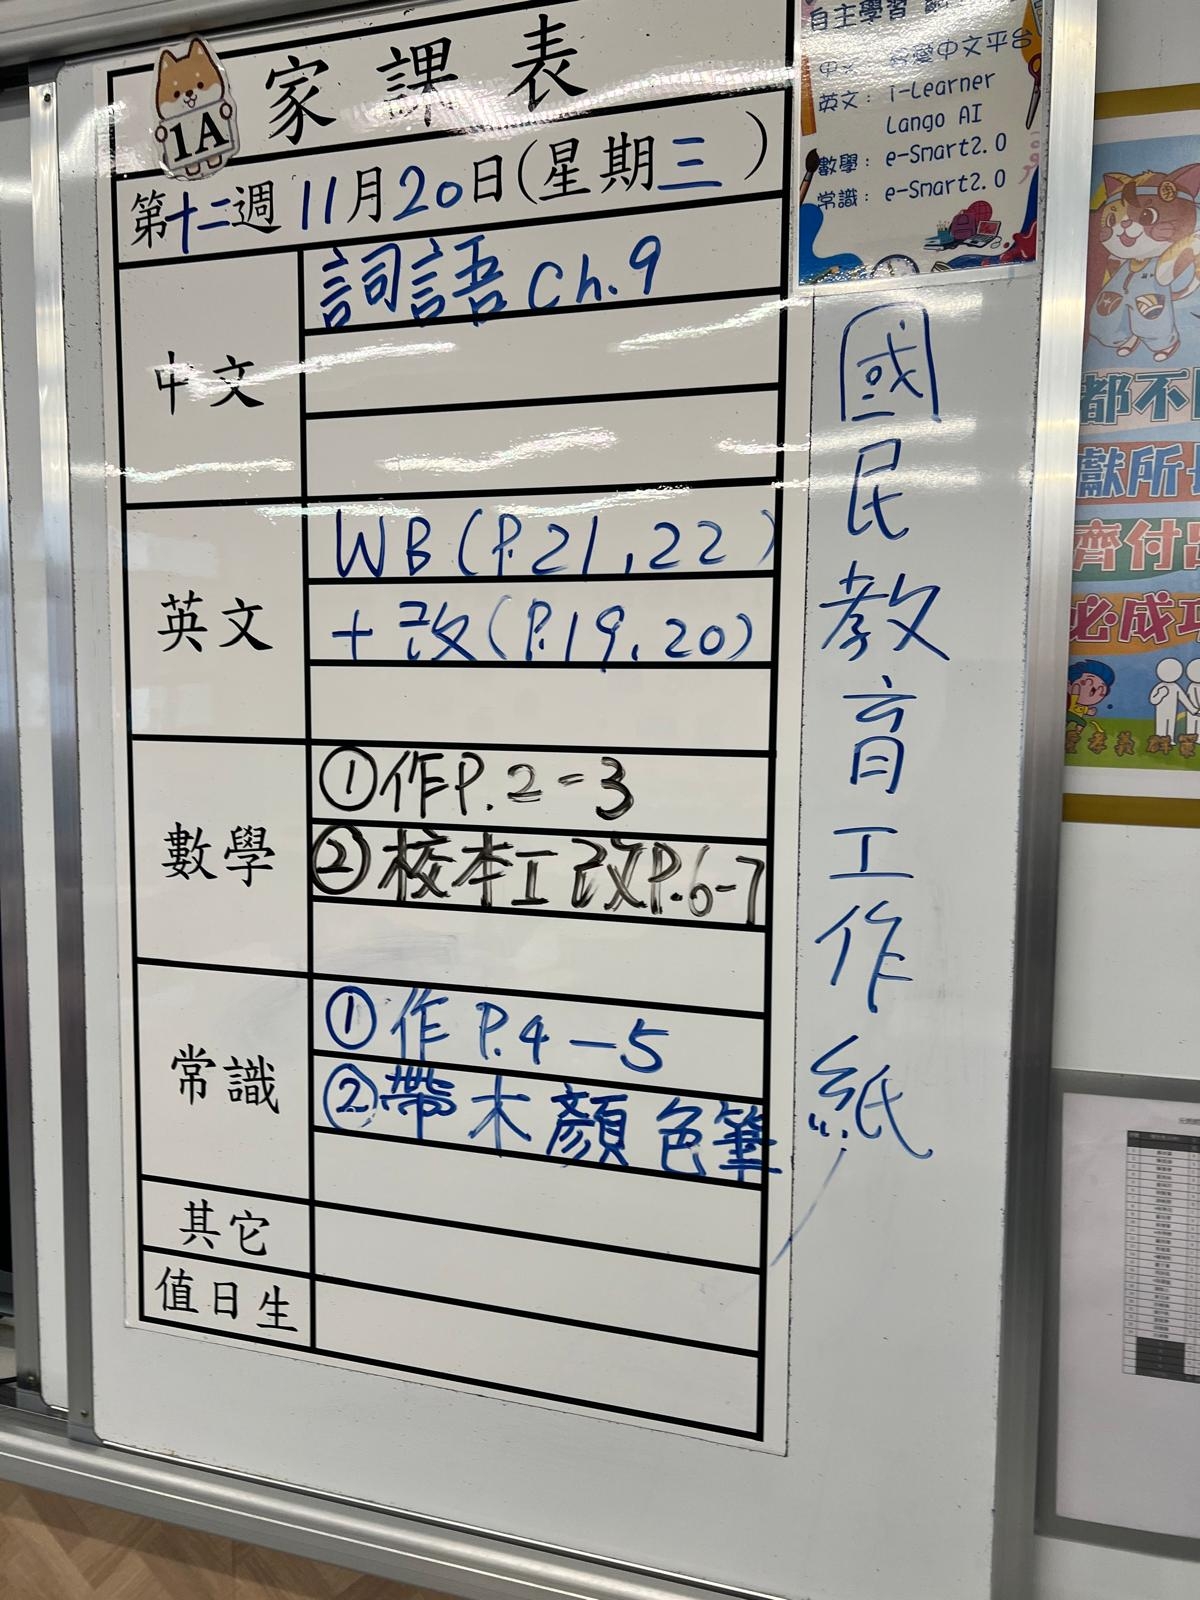 1A
家課表
第十二週 11月20日(星期三)
中文
詞語 ch.9
英文
WB (P.21,22)
+ 改 (P.19,20)
數學
①作P.2-3
②校本工改P.6-7
常識
①作 P.4-5
②帶木顏色筆
其它
值日生
國民教育工作紙
自主學習
中文平台
英文: i-Learner
Lango AI
數學: e-Smart2.0
常識: e-Smart2.0
都不
獻所
齊付出
必成功